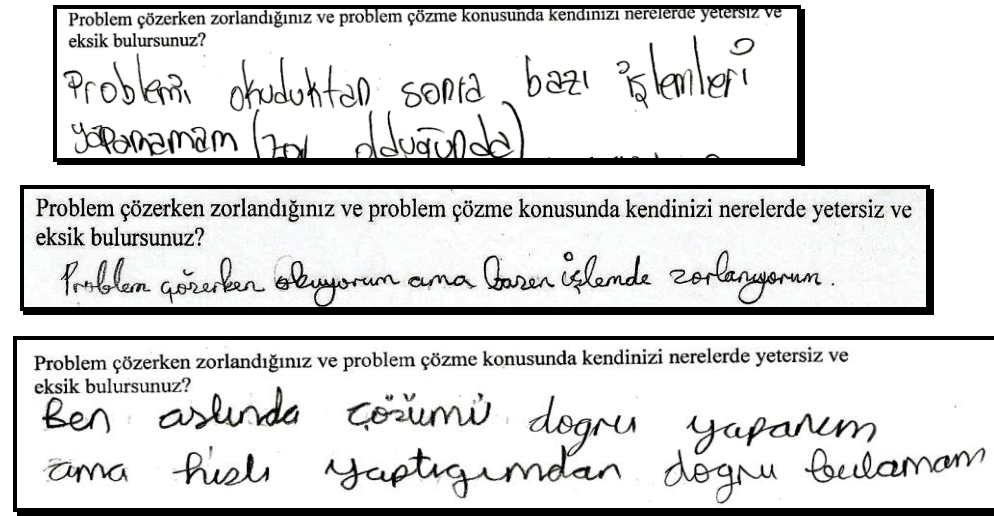 Problem çözerken zorlandığınız ve problem çözme konusunda kendinizi nerelerde yetersiz ve
eksik bulursunuz?
Problemi okuduktan sonra bazı işlemleri
yapamamam (zor olduğunda)
Problem çözerken zorlandığınız ve problem çözme konusunda kendinizi nerelerde yetersiz ve
eksik bulursunuz?
Problem çözerken okuyorum ama bazen işlemde zorlanıyorum.
Problem çözerken zorlandığınız ve problem çözme konusunda kendinizi nerelerde yetersiz ve
eksik bulursunuz?
Ben aslında çözümü doğru yaparım
ama hızlı yaptıgımdan doğru bulamam